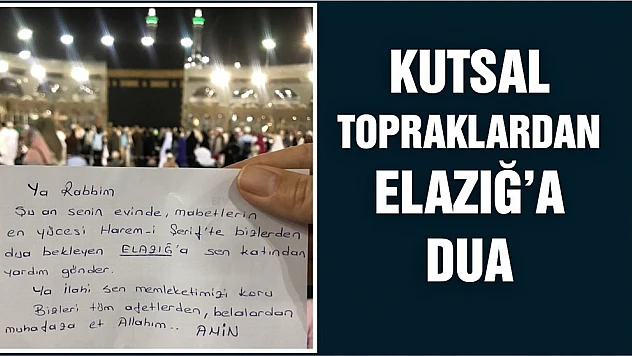 Ya Rabbim
Şu an senin evinde, mabetlerin
en yücesi Harem-i Şerif'te bizlerden
dua bekleyen ELAZIĞ'a sen katından
yardım gönder.
Ya ilahi sen memleketimizi koru
Bizleri tüm afetlerden, belalardan
muhafaza et Allahım.. AMİN
KUTSAL
TOPRAKLARDAN
ELAZIĞ'A
DUA